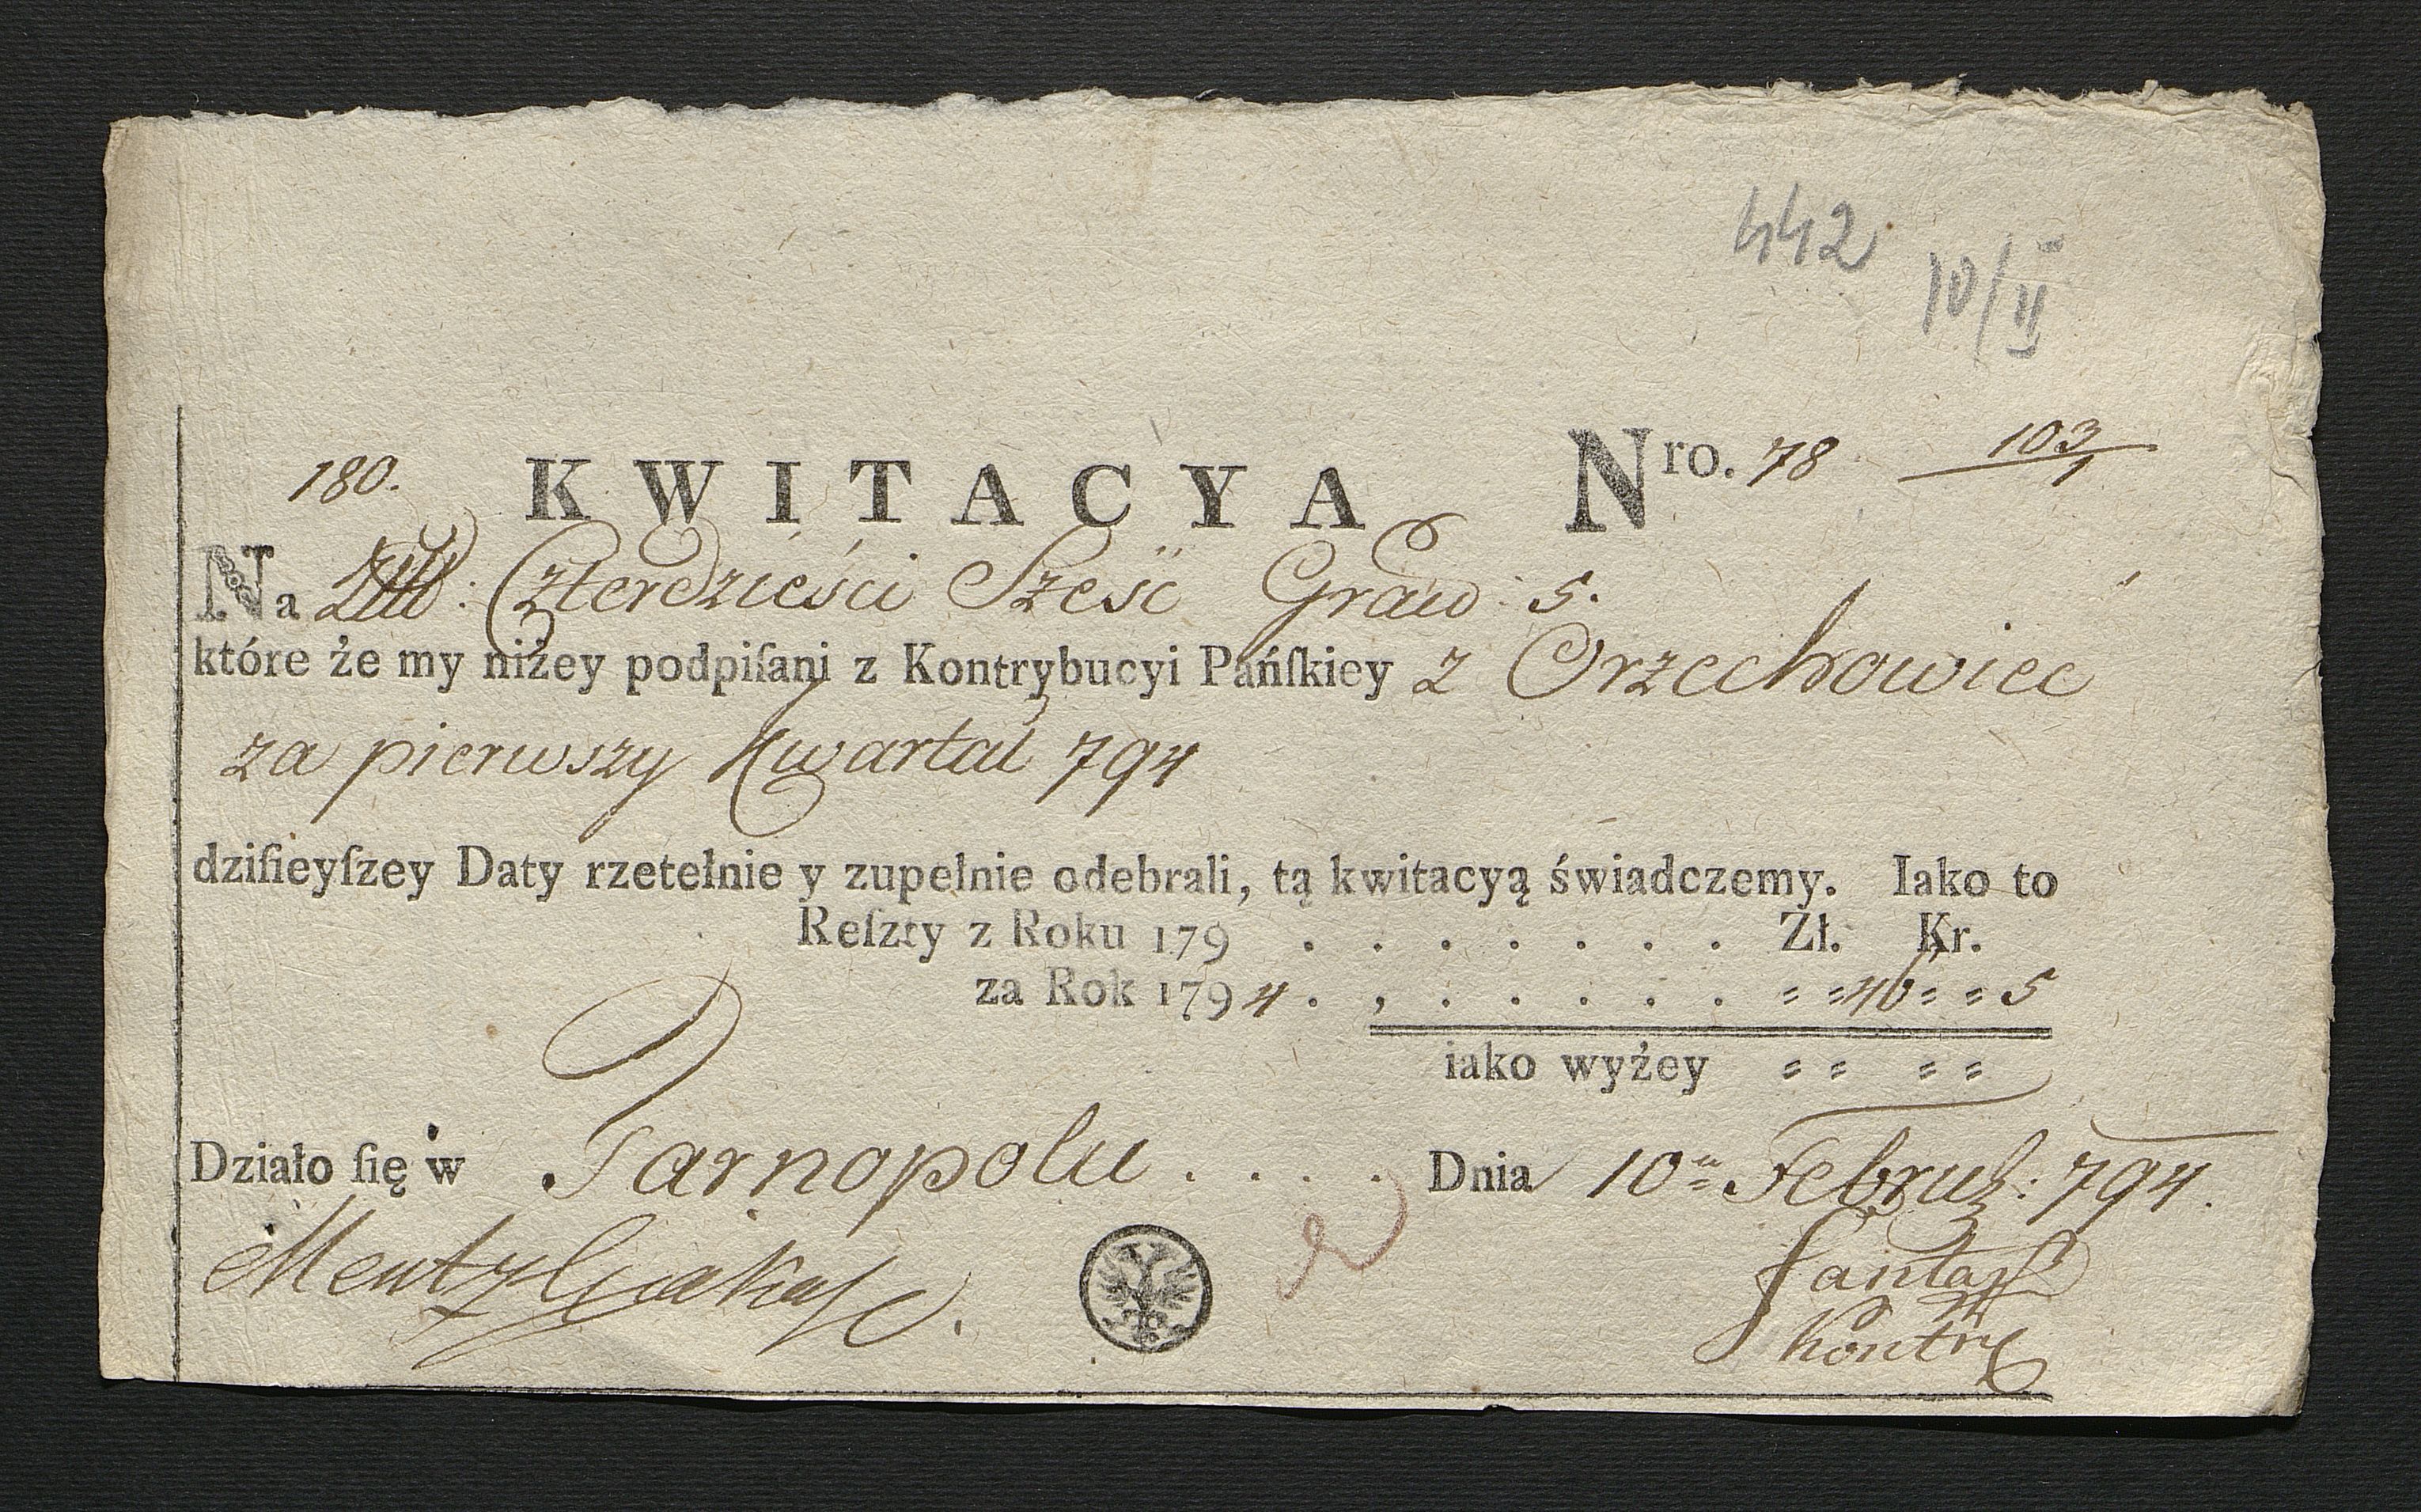 442
10/II
180. KWITACYA Nro. 78 103/1
Na Zł: Czterdzieści Sześć Graw: 5.
które że my niżey podpiſani z Kontrybucyi Pańſkiey z Orzechowiec
za pierwszy Kwartał 794
dziſieyſzey Daty rzetelnie y zupełnie odebrali, tą kwitacyą świadczemy. Iako to
Reſzty z Roku 179 . . . . . . . Zł. Kr.
za Rok 1794 . , . . . . . 46 5
iako wyżey
Działo ſię w Tarnopolu . . . . Dnia 10 Febru: 794.
Kontr